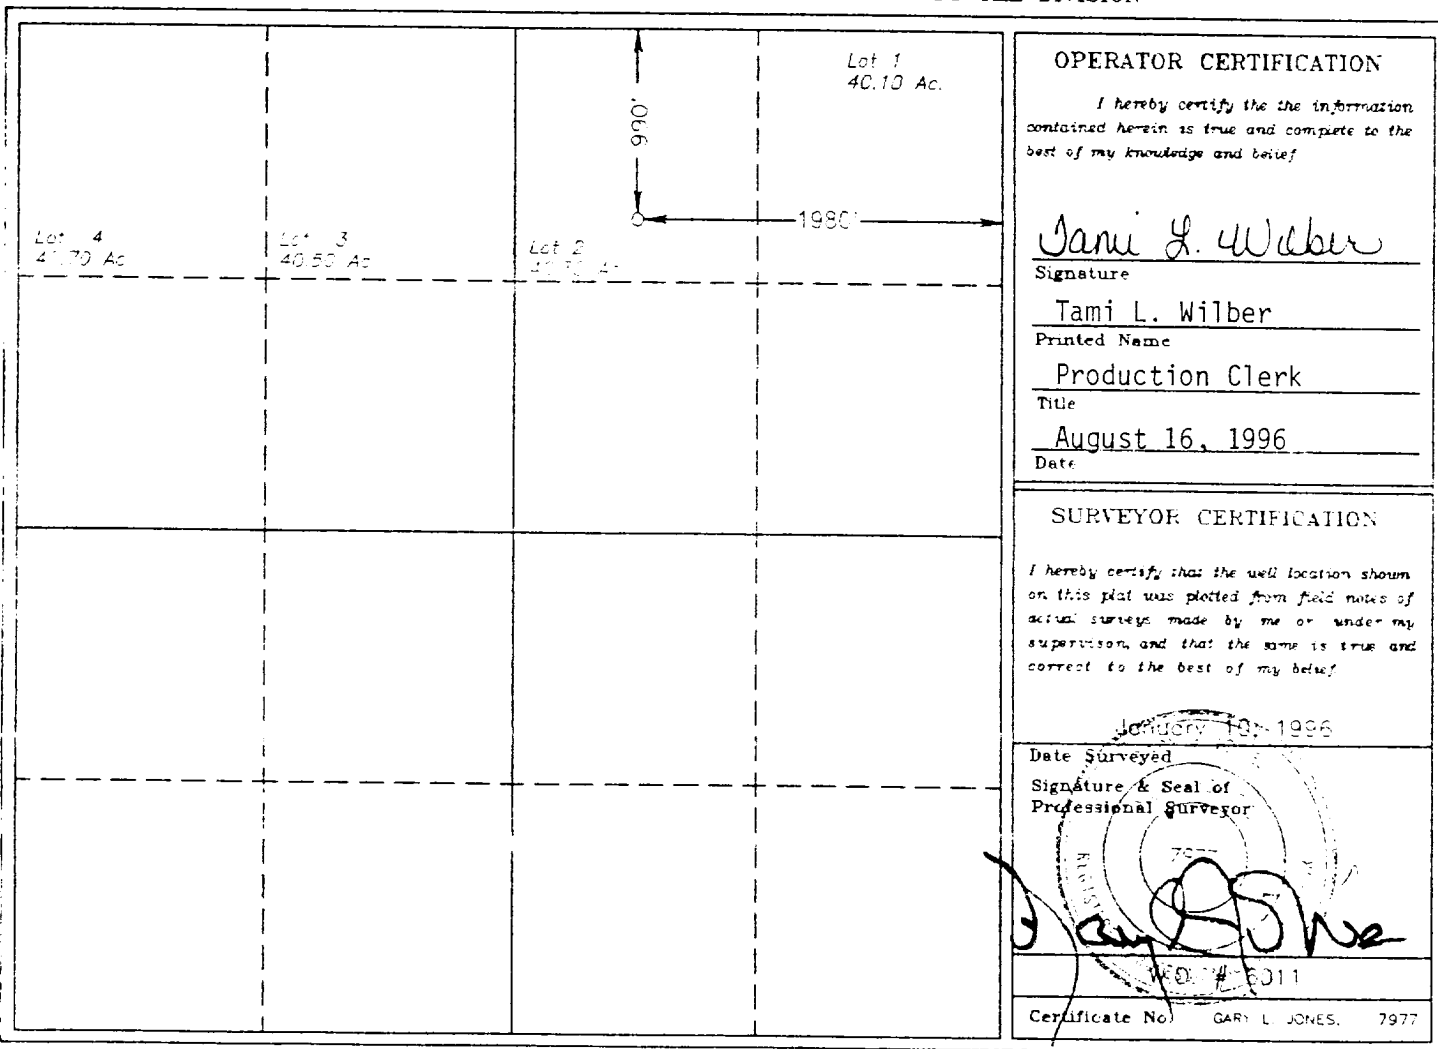 Lot 1
40.10 Ac.
990'
1980'
Lot 4
Ac
Lot 3
40.50 Ac
Lot 2
OPERATOR CERTIFICATION
I hereby certify the the information
contained herein is true and complete to the
best of my knowledge and belief
Tami L. Wilber
Signature
Tami L. Wilber
Printed Name
Production Clerk
Title
August 16, 1996
Date
SURVEYOR CERTIFICATION
I hereby certify that the well location shown
on this plat was plotted from field notes of
actual surveys made by me or under my
supervison, and that the same is true and
correct to the best of my belief
January 10, 1996
Date Surveyed
Signature & Seal of
Professional Surveyor
7977
W.O. # 6011
Certificate No. GARY L. JONES, 7977